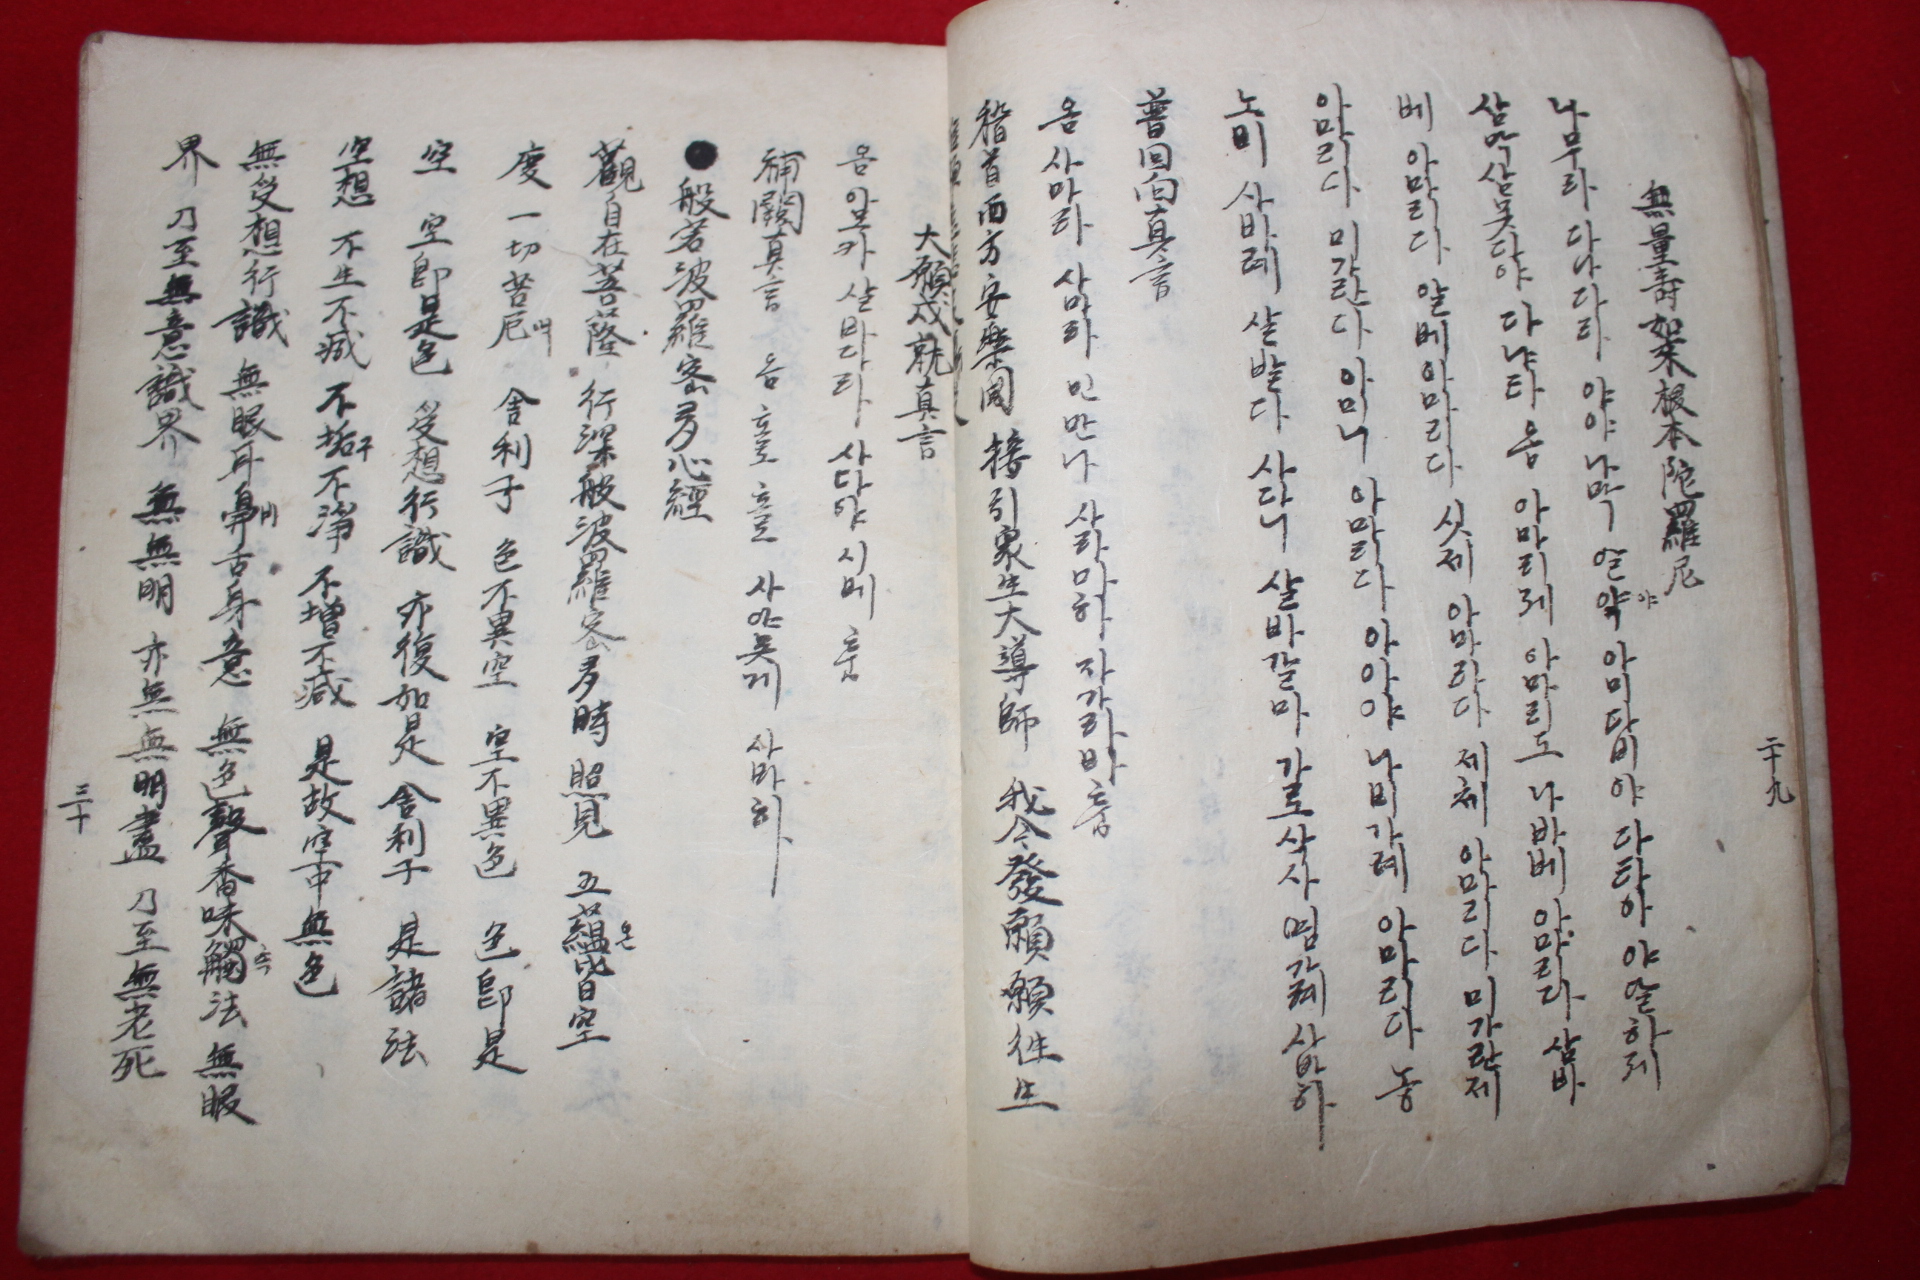 無量壽如來根本陀羅尼
나무라 다나다라 야야 나막 알약 야 아미다바야 다타아 야알하제
삼먁삼못다야 다냐타 옴 아마리제 아마리도 나바베 아마리다 삼바
베 아마리다 알베아마리다 싯제 아마리다 제체 아마리다 미가란제
아마리다 미가란다 아미니 아마리다 아아야 나비가례 아마리다 농
노비 사바례 살발다 사다니 살바갈마 가로삭사 염가례 사바하
普回向真言
옴 사마라 사마라 미만나 사라마하 자가라바 훔
稽首西方安樂國 接引衆生大導師 我今發願願徃生
二十九
大願成就真言
옴 아모카 살바다라 사다야 시베 훔
補闕真言 옴 호로 호로 사야목계 사바하
●般若波羅密多心經
觀自在菩薩 行深般波羅密多時 照見 五蘊온皆空
度 一切苦厄액 舍利子 色不異空 空不異色 色卽是
空 空卽是色 受想行識 亦復如是 舍利子 是諸法
空想 不生不滅 不垢구不淨 不增不減 是故空中無色
無受想行識 無眼耳鼻비舌身意 無色聲香味觸촉法 無眼
界 乃至無意識界 無無明 亦無無明盡 乃至無老死
三十